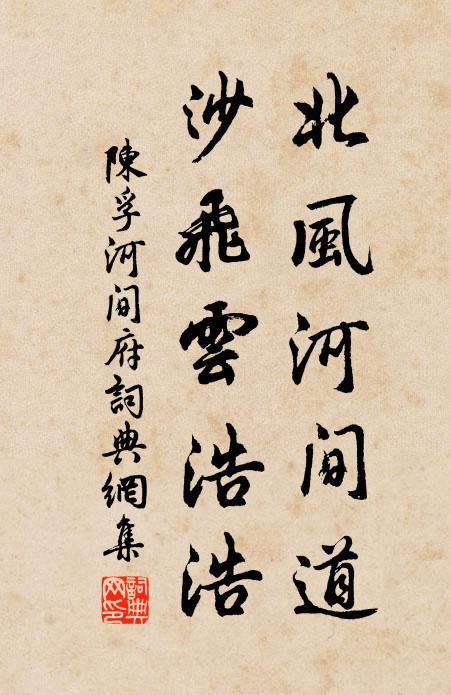 北風河间道
沙飛雲浩浩
陳孚河间府詞典網集
詞典
网印